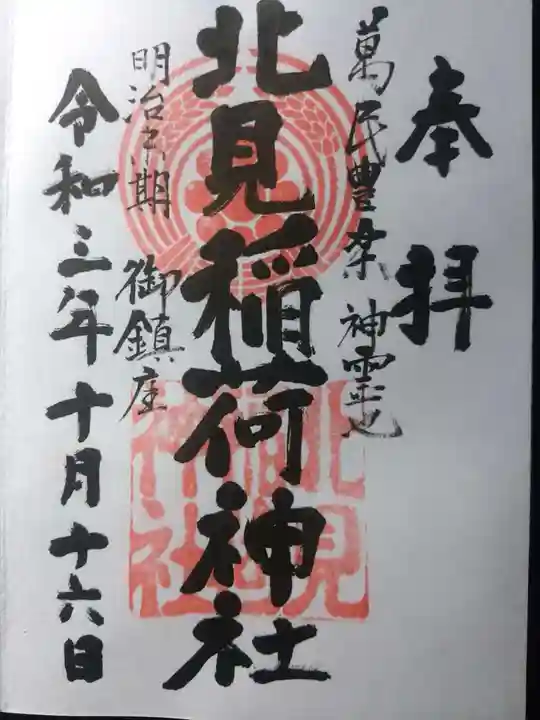 奉拝
萬民豊楽 神霊也
北見稲荷神社
北見稲荷神社
明治初期 御鎮座
令和三年十月十六日